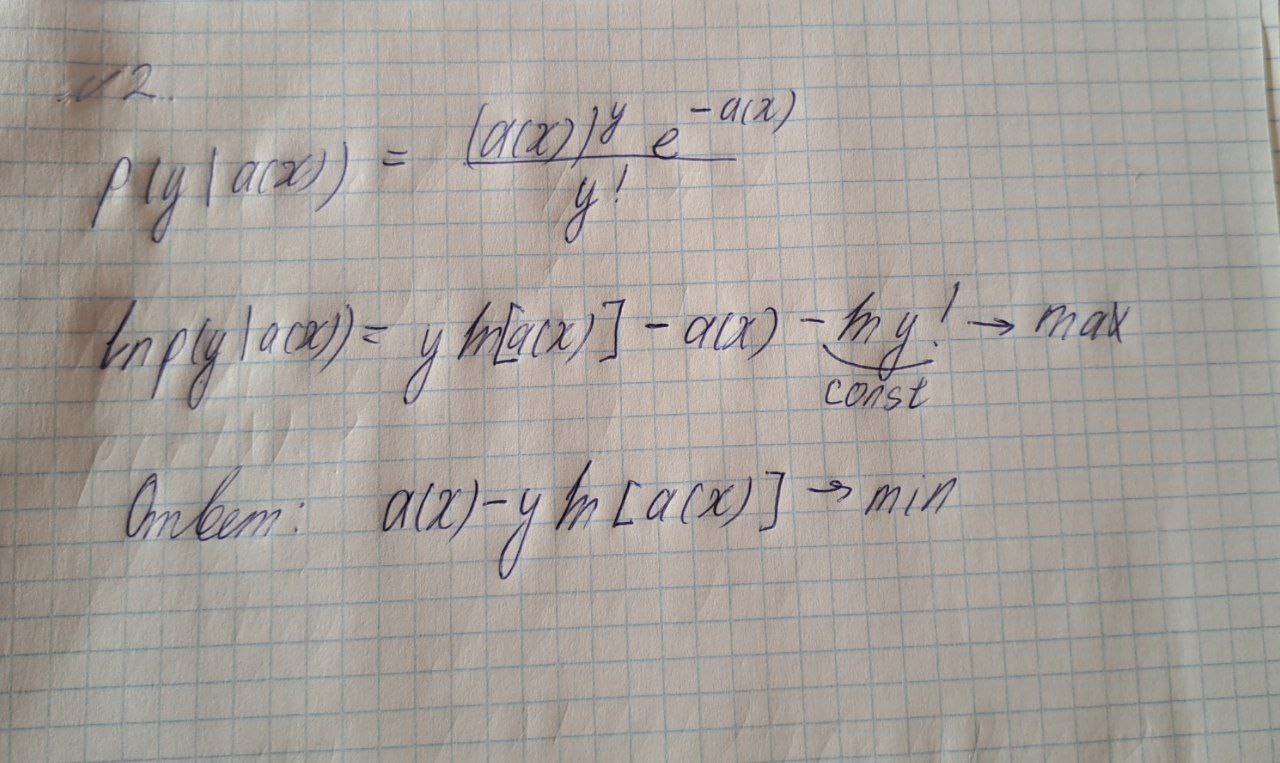 №2.
p(y|a(x)) = (a(x))^y e^{-a(x)} / y!
ln p(y|a(x)) = y ln[a(x)] - a(x) - ln y! → max
const
Ответ: a(x) - y ln [a(x)] → min